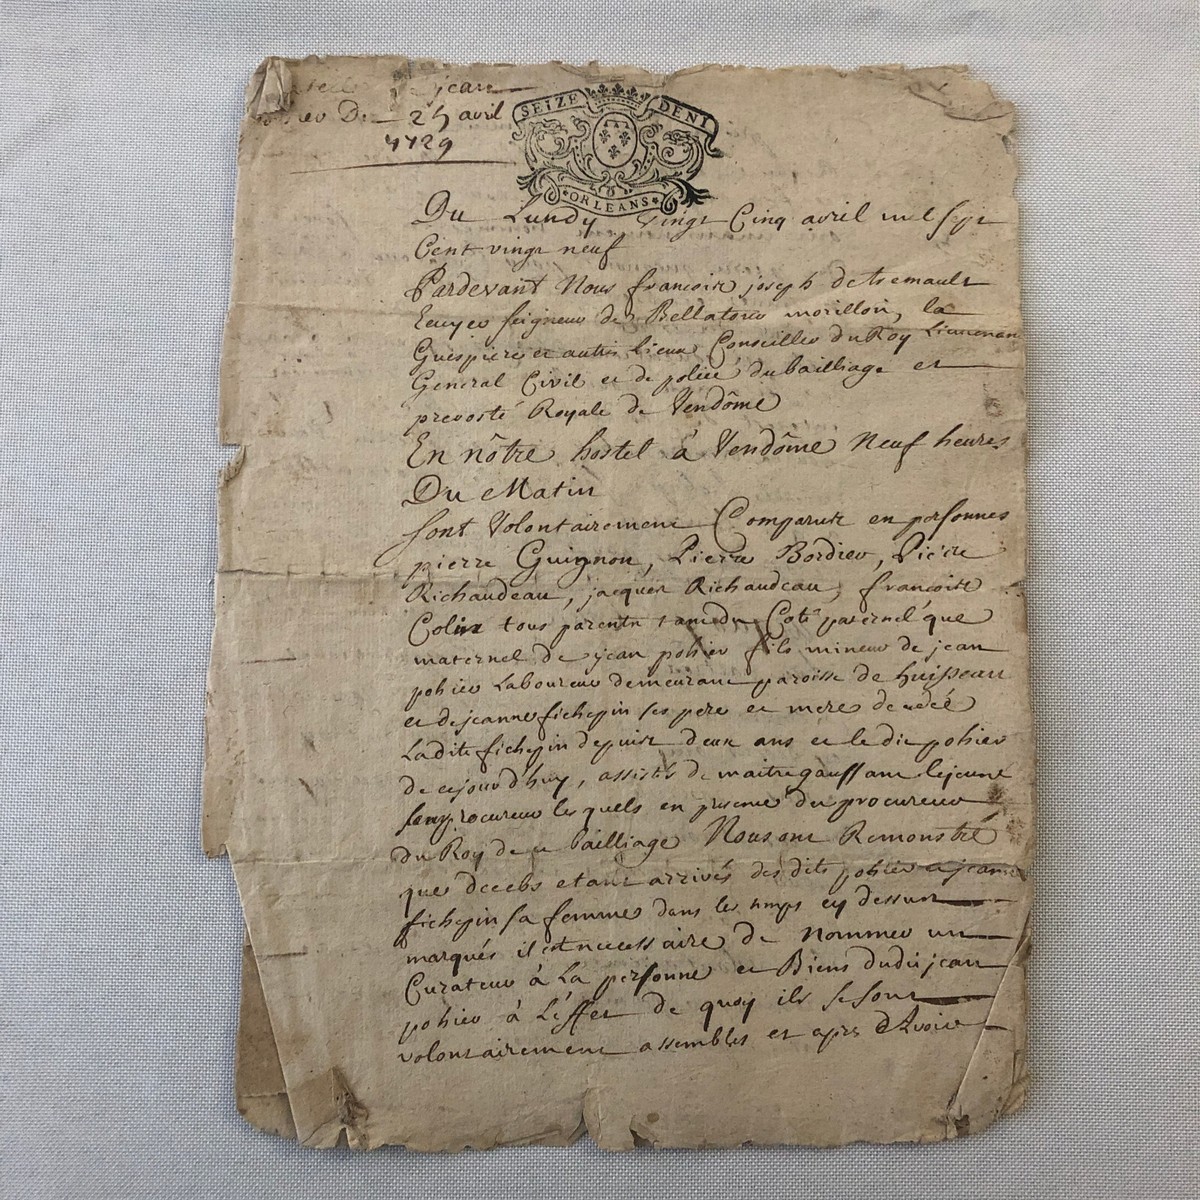 jean
25 avril
1729
SEIZE DENI
ORLEANS
Du Lundy vingt Cinq avril mil sept
Cent vingt neuf
Pardevant Nous francois joseph detremault
Ecuyer seigneur de Bellatour morillon, la
Guespiere et autres lieux Conseiller du Roy Lieutenan
General Civil et de police du bailliage et
prevosté Royale de Vendôme
En nôtre hostel à Vendôme Neuf heures
Du Matin
sont Volontairement Comparus en personnes
pierre Guignon, Pierre Bordier, Pierre
Richaudeau, jacques Richaudeau, francois
Colin tous parents tant du Coté paternel que
maternel de jean pohier fils mineur de jean
pohier Laboureur demeurant paroisse de huisseau
et de jeanne fichepin ses pere et mere decedé
Ladite fichepin depuis deux ans et le dit pohier
de cejourd'huy, assistés de maitre gaussant lejeune
leur procureur les quels en presence du procureur
du Roy de ce bailliage Nous ont Remonstré
que deceds etant arrivés des dits pohier et jeanne
fichepin sa femme dans les temps cy dessus
marqués il est necessaire de nommer un
Curateur à La personne et Biens dudit jean
pohier à L'effet de quoy ils se sont
volontairement assemblés et apres d'Avoir